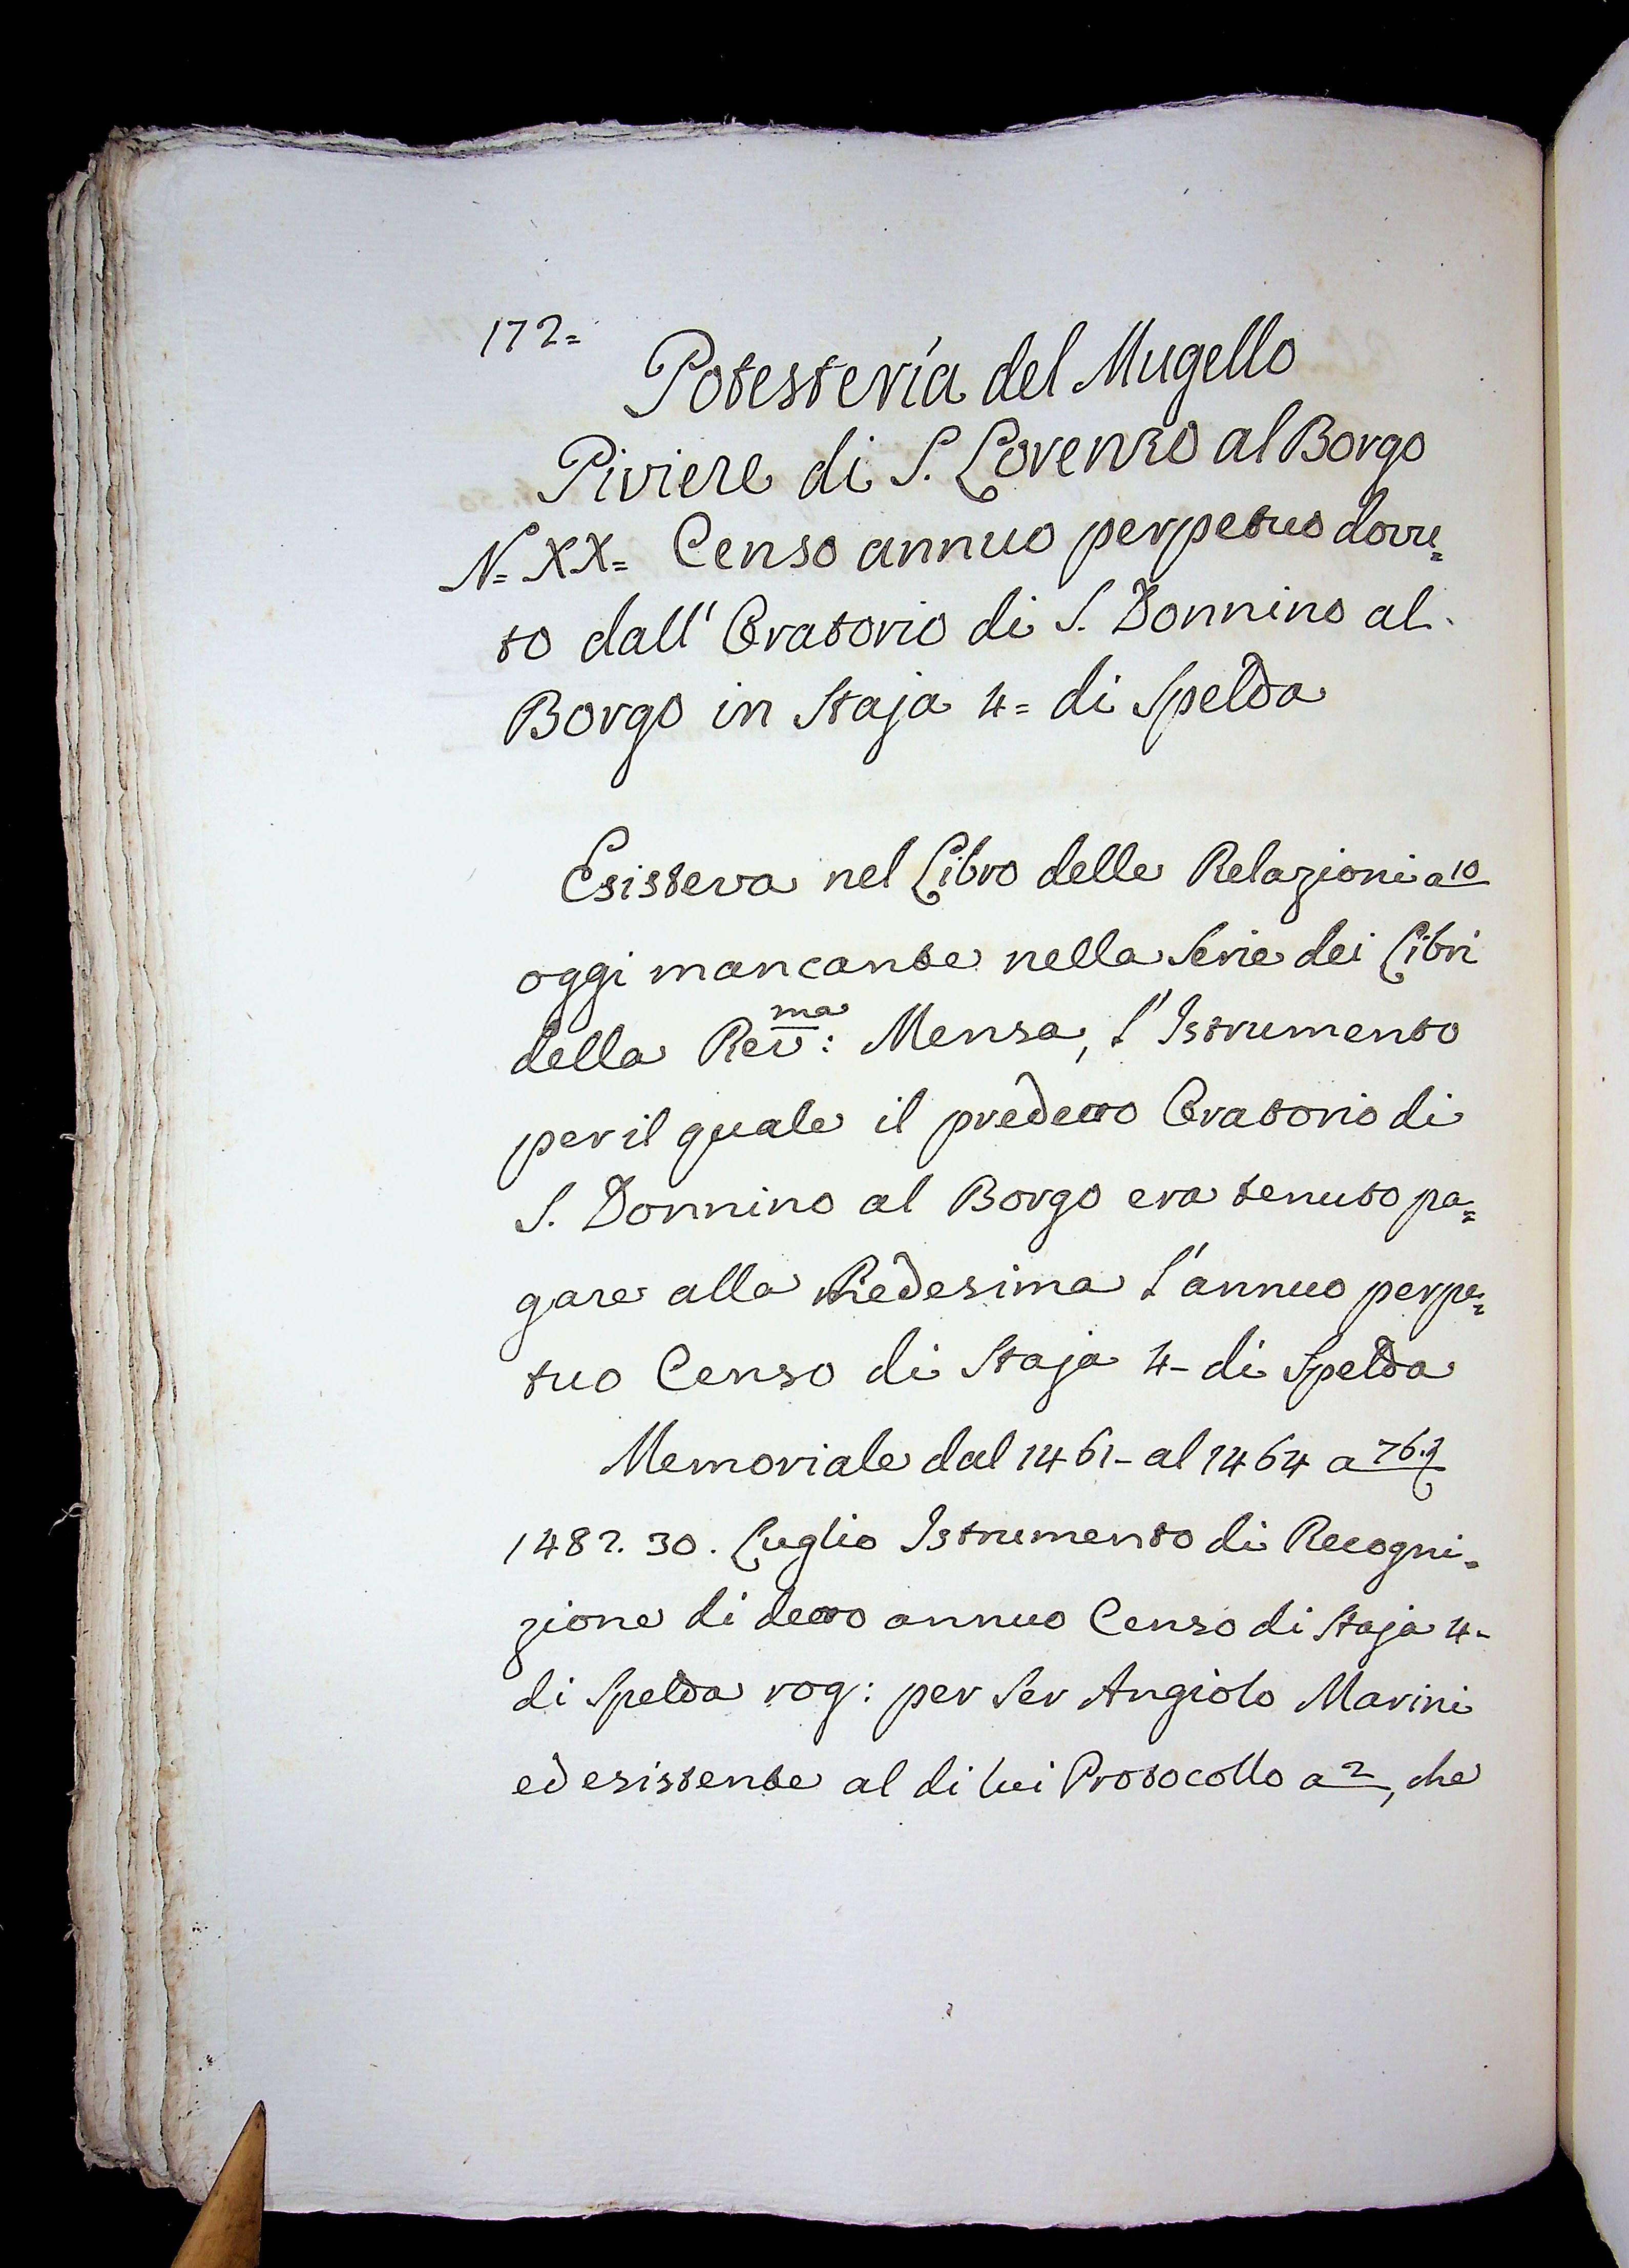 172=
Potesteria del Mugello
Piviere di S. Lorenzo al Borgo
N= XX= Censo annuo perpetuo dovu=
to dall' Oratorio di S. Donnino al
Borgo in Staja 4= di Spelda
Esisteva nel Libro delle Relazioni a 10
oggi mancante nella Serie dei Libri
della Rev:ma Mensa, l'Istrumento
per il quale il predetto Oratorio di
S. Donnino al Borgo era tenuto pa=
gare alla Medesima l'annuo perpe=
tuo Censo di Staja 4- di Spelda
Memoriale dal 1461- al 1464 a 76.
1482. 30. Luglio Istrumento di Recogni=
zione di detto annuo Censo di Staja 4-
di Spelda rog: per Ser Angiolo Marini
ed esistente al di lui Protocollo a 2, che